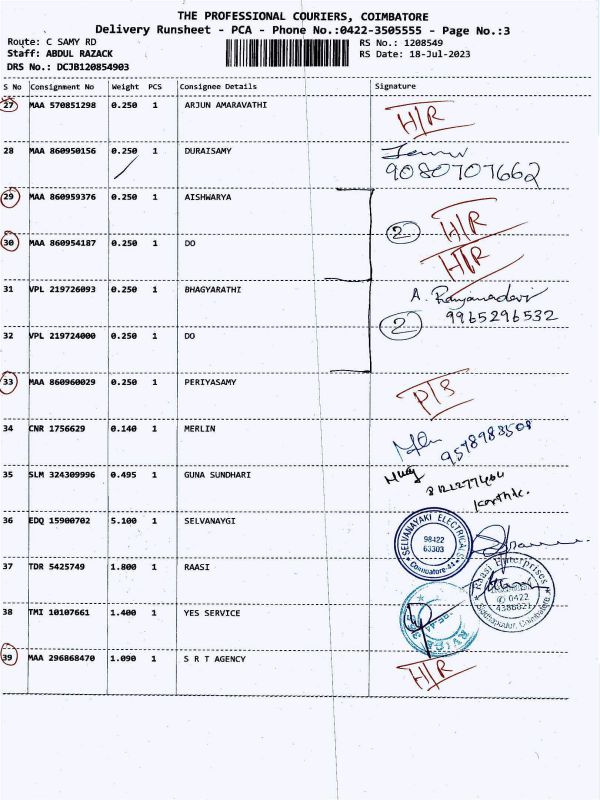 THE PROFESSIONAL COURIERS, COIMBATORE
Delivery Runsheet - PCA - Phone No.:0422-3505555 - Page No.:3
Route: C SAMY RD RS No.: 1208549
Staff: ABDUL RAZACK RS Date: 18-Jul-2023
DRS No.: DCJB120854903
S No Consignment No Weight PCS Consignee Details Signature
27 MAA 570851298 0.250 1 ARJUN AMARAVATHI H/R
28 MAA 860950156 0.250 1 DURAISAMY
9080707662
29 MAA 860959376 0.250 1 AISHWARYA H/R
2
30 MAA 860954187 0.250 1 DO H/R
31 VPL 219726093 0.250 1 BHAGYARATHI A.
9965296532
2
32 VPL 219724000 0.250 1 DO
33 MAA 860960029 0.250 1 PERIYASAMY
34 CNR 1756629 0.140 1 MERLIN
9578983508
35 SLM 324309996 0.495 1 GUNA SUNDHARI
36 EDQ 15900702 5.100 1 SELVANAYGI
SELVANAYAKI ELECTRICALS
98422
63303
Coimbatore-44
37 TDR 5425749 1.800 1 RAASI
Raasi Enterprises
0422
4386021
Coimbatore
38 TMI 10107661 1.400 1 YES SERVICE
39 MAA 296868470 1.090 1 S R T AGENCY H/R